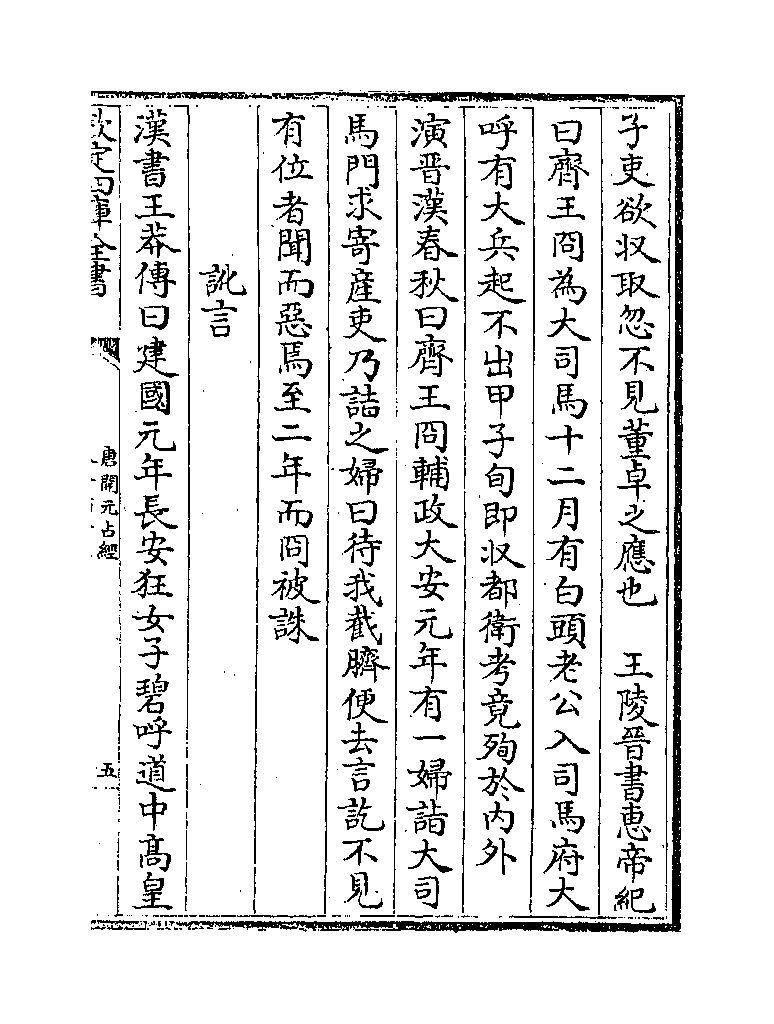 子吏欲収取忽不見董卓之應也　王陵晉書惠帝紀
曰齊王冏為大司馬十二月有白頭老公入司馬府大
呼有大兵起不出甲子旬即収都衛考竟殉於内外
演晉漢春秋曰齊王冏輔政大安元年有一婦詣大司
馬門求寄産吏乃詰之婦曰待我截臍便去言訖不見
有位者聞而惡焉至二年而冏被誅
訛言
漢書王莽傳曰建國元年長安狂女子碧呼道中髙皇
欽定四庫全書
唐開元占經
五